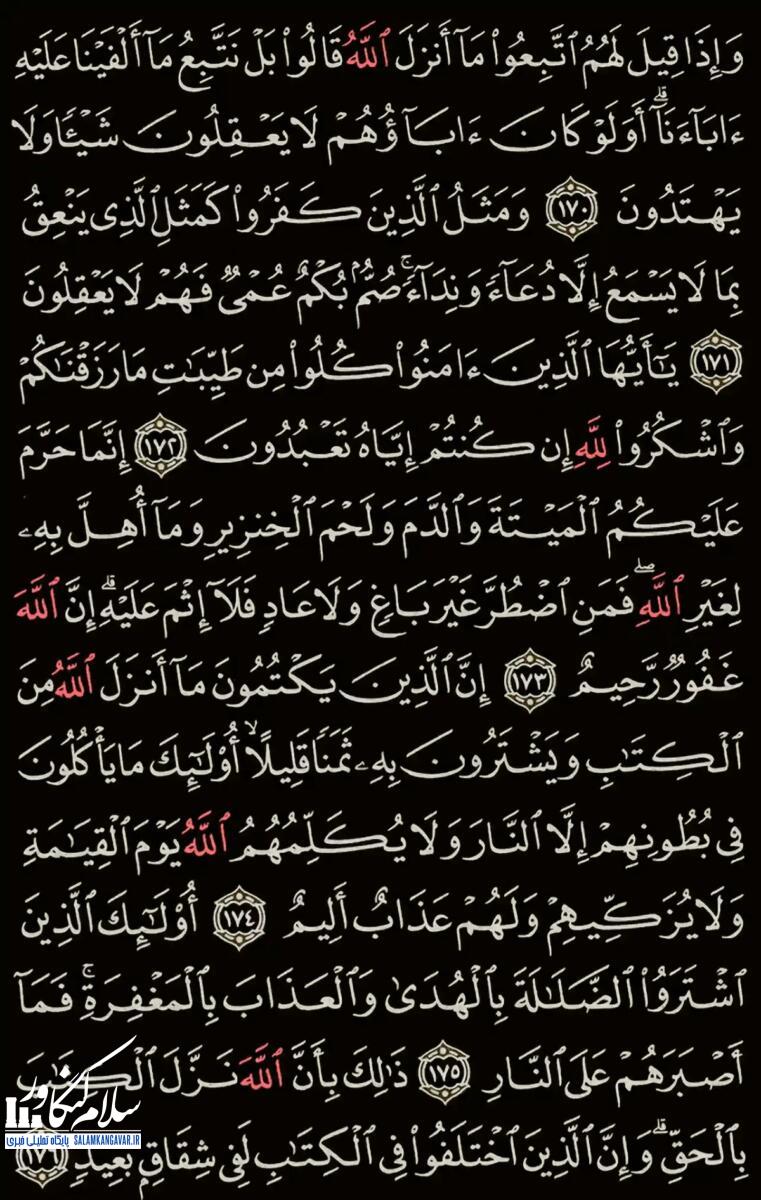 وَإِذَا قِيلَ لَهُمُ ٱتَّبِعُوا۟ مَآ أَنزَلَ ٱللَّهُ قَالُوا۟ بَلْ نَتَّبِعُ مَآ أَلْفَيْنَا عَلَيْهِ
ءَابَآءَنَآ ۗ أَوَلَوْ كَانَ ءَابَآؤُهُمْ لَا يَعْقِلُونَ شَيْـًٔا وَلَا
يَهْتَدُونَ ١٧٠ وَمَثَلُ ٱلَّذِينَ كَفَرُوا۟ كَمَثَلِ ٱلَّذِى يَنْعِقُ
بِمَا لَا يَسْمَعُ إِلَّا دُعَآءً وَنِدَآءً ۚ صُمٌّۢ بُكْمٌ عُمْىٌ فَهُمْ لَا يَعْقِلُونَ
١٧١ يَـٰٓأَيُّهَا ٱلَّذِينَ ءَامَنُوا۟ كُلُوا۟ مِن طَيِّبَـٰتِ مَا رَزَقْنَـٰكُمْ
وَٱشْكُرُوا۟ لِلَّهِ إِن كُنتُمْ إِيَّاهُ تَعْبُدُونَ ١٧٢ إِنَّمَا حَرَّمَ
عَلَيْكُمُ ٱلْمَيْتَةَ وَٱلدَّمَ وَلَحْمَ ٱلْخِنزِيرِ وَمَآ أُهِلَّ بِهِۦ
لِغَيْرِ ٱللَّهِ ۖ فَمَنِ ٱضْطُرَّ غَيْرَ بَاغٍ وَلَا عَادٍ فَلَآ إِثْمَ عَلَيْهِ ۗ إِنَّ ٱللَّهَ
غَفُورٌ رَّحِيمٌ ١٧٣ إِنَّ ٱلَّذِينَ يَكْتُمُونَ مَآ أَنزَلَ ٱللَّهُ مِنَ
ٱلْكِتَـٰبِ وَيَشْتَرُونَ بِهِۦ ثَمَنًا قَلِيلًا ۙ أُو۟لَـٰٓئِكَ مَا يَأْكُلُونَ
فِى بُطُونِهِمْ إِلَّا ٱلنَّارَ وَلَا يُكَلِّمُهُمُ ٱللَّهُ يَوْمَ ٱلْقِيَـٰمَةِ
وَلَا يُزَكِّيهِمْ وَلَهُمْ عَذَابٌ أَلِيمٌ ١٧٤ أُو۟لَـٰٓئِكَ ٱلَّذِينَ
ٱشْتَرَوُا۟ ٱلضَّلَـٰلَةَ بِٱلْهُدَىٰ وَٱلْعَذَابَ بِٱلْمَغْفِرَةِ ۚ فَمَآ
أَصْبَرَهُمْ عَلَى ٱلنَّارِ ١٧٥ ذَٰلِكَ بِأَنَّ ٱللَّهَ نَزَّلَ ٱلْكِتَـٰبَ
بِٱلْحَقِّ ۗ وَإِنَّ ٱلَّذِينَ ٱخْتَلَفُوا۟ فِى ٱلْكِتَـٰبِ لَفِى شِقَاقٍۭ بَعِيدٍ ١٧٦
سلام کنگاور
پایگاه تحلیلی خبری SALAMKANGAVAR.IR